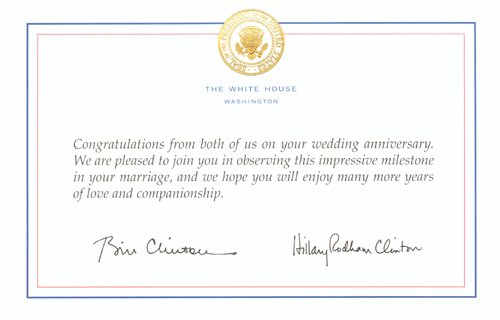 SEAL OF THE PRESIDENT OF THE UNITED STATES
THE WHITE HOUSE
WASHINGTON
Congratulations from both of us on your wedding anniversary.
We are pleased to join you in observing this impressive milestone
in your marriage, and we hope you will enjoy many more years
of love and companionship.
Bill Clinton Hillary Rodham Clinton